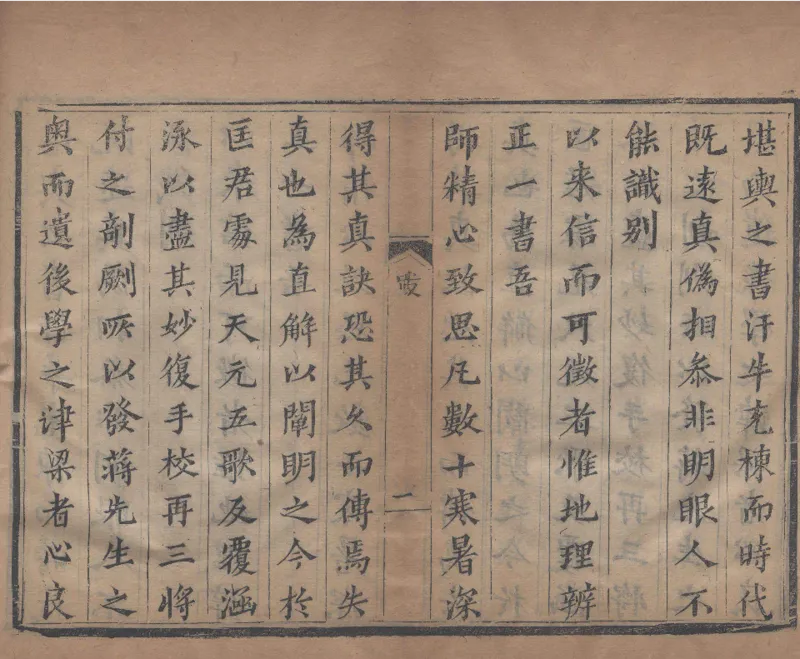 堪輿之書汗牛充棟而時代
既遠真僞相叅非明眼人不
能識别
以来信而可徵者惟地理辨
正一書吾
師精心致思凡數十寒暑深
跋
二
得其真訣恐其久而傳焉失
真也為直解以闡明之今於
匡君處見天元五歌反覆涵
泳以盡其妙復手校再三將
付之剞劂所以發蔣先生之
奥而遺後學之津梁者心良